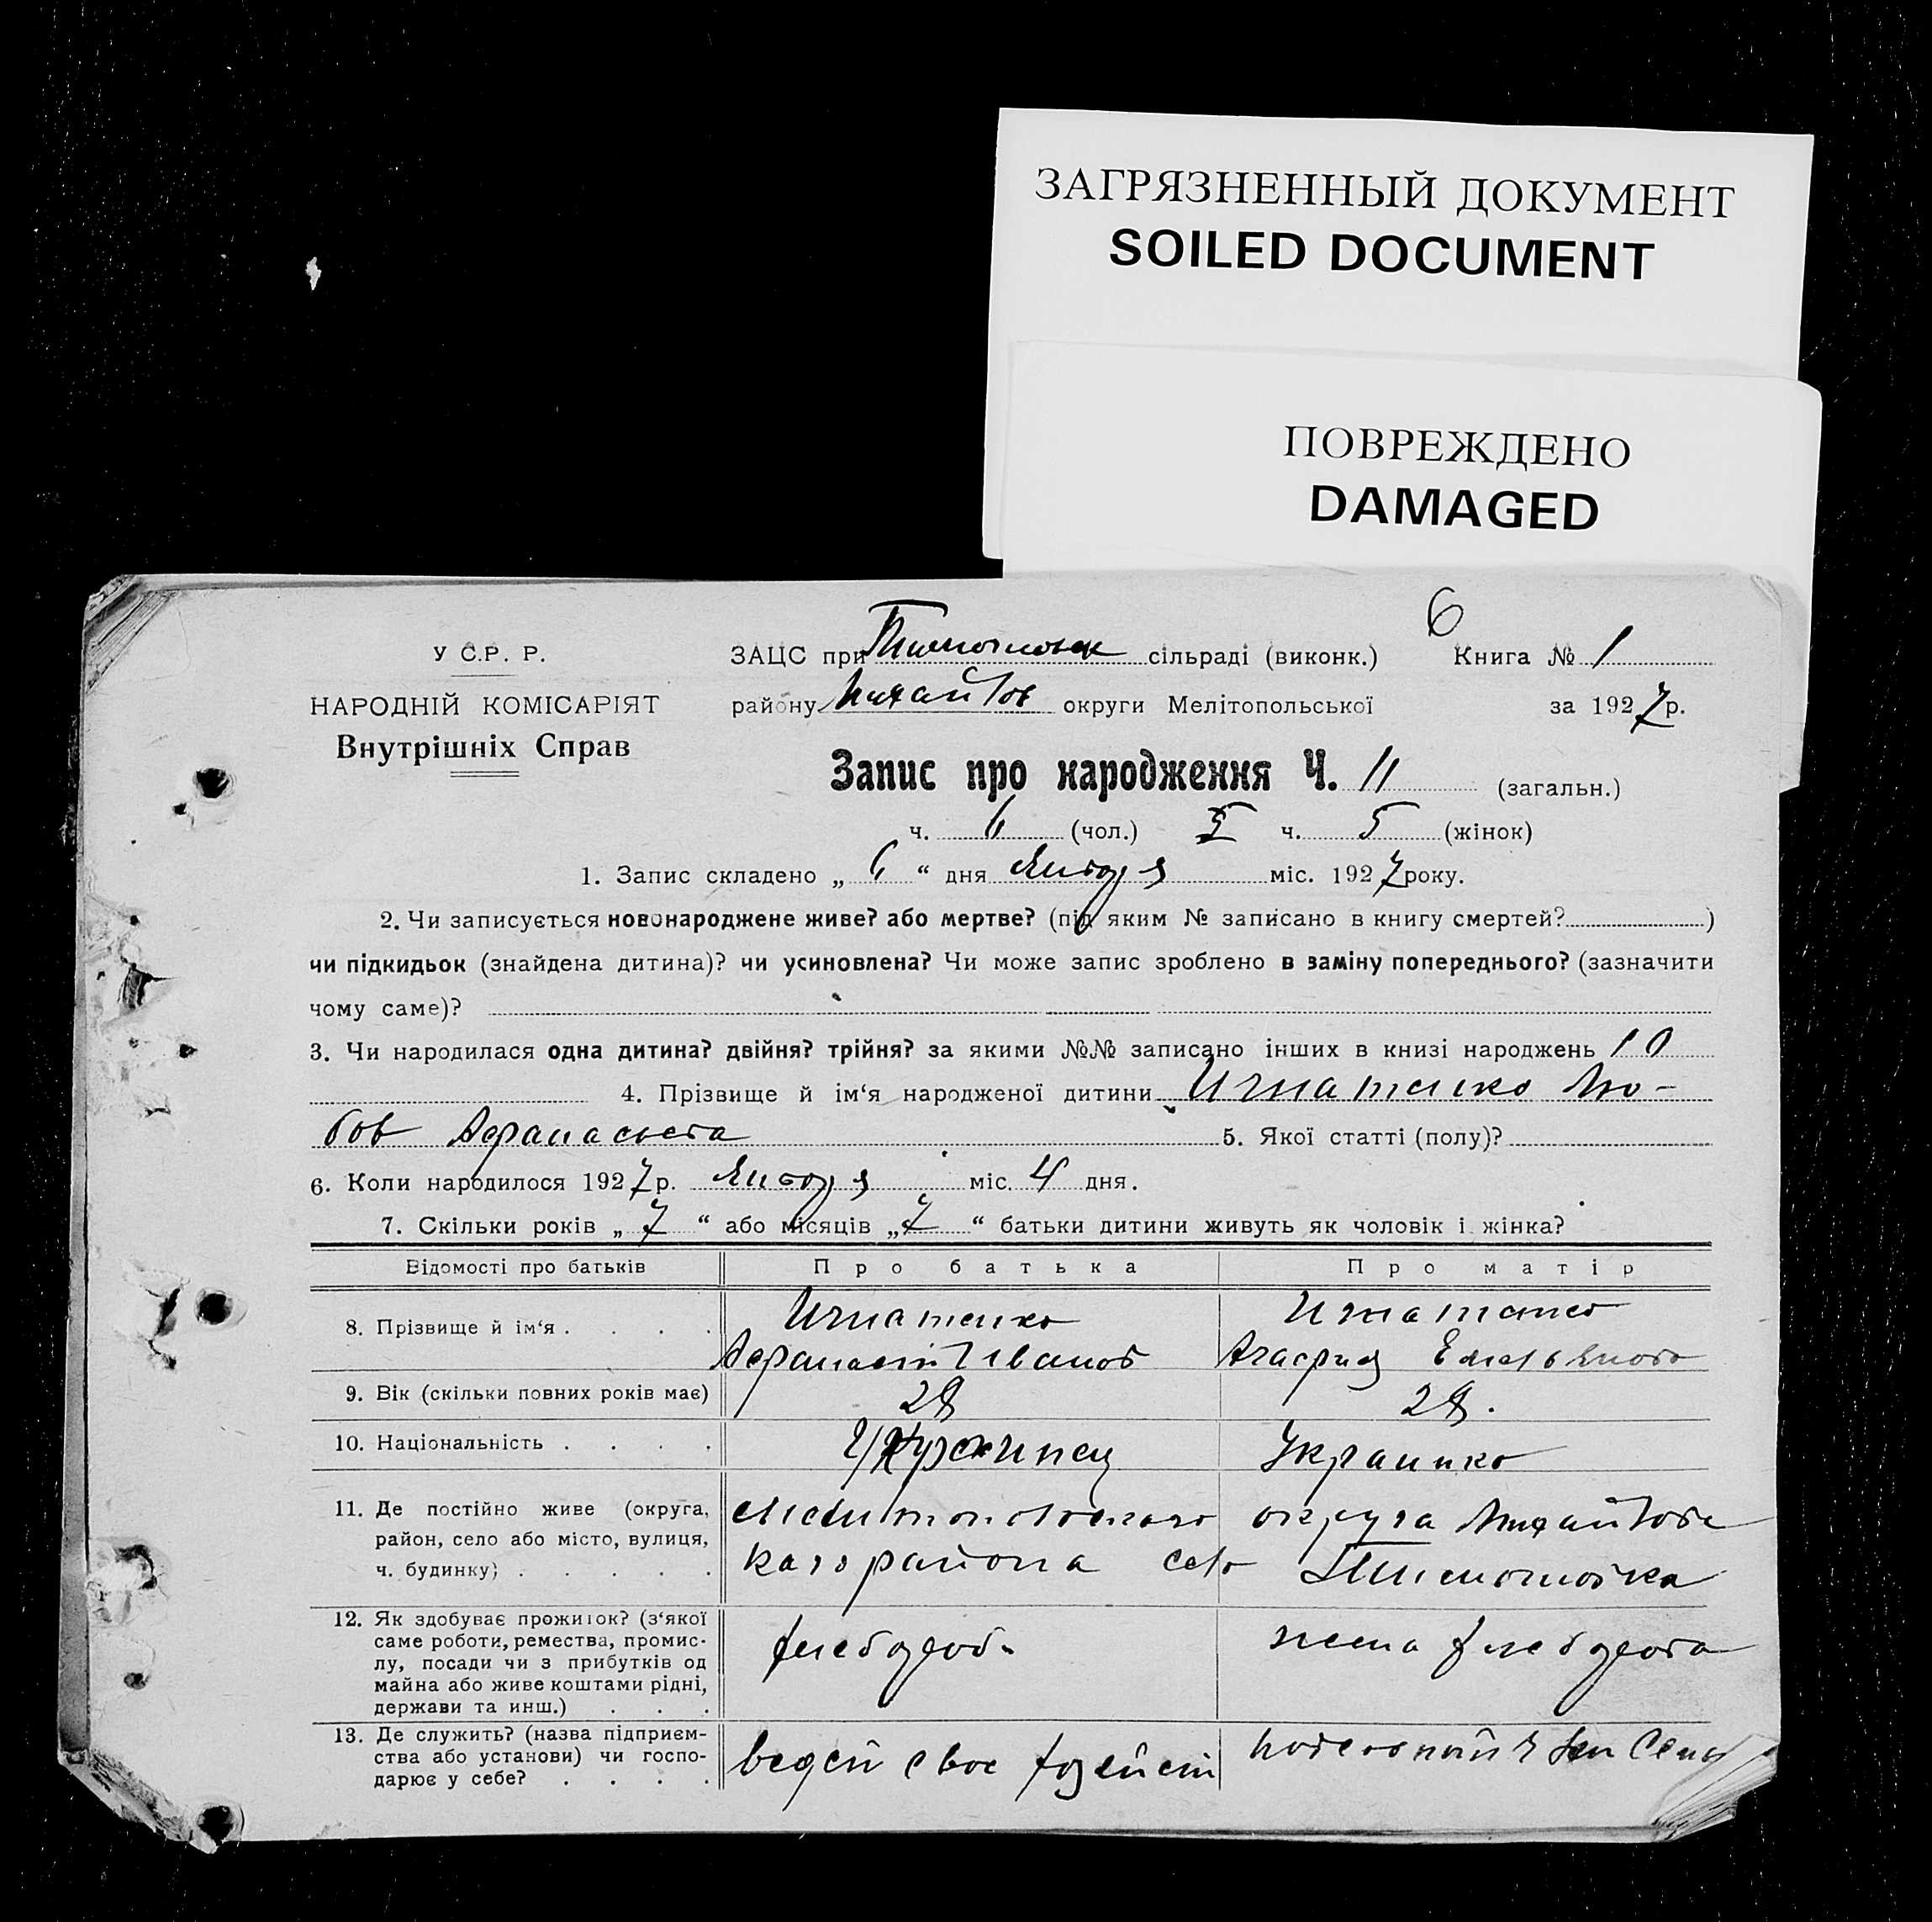 ЗАГРЯЗНЕННЫЙ ДОКУМЕНТ
SOILED DOCUMENT
ПОВРЕЖДЕНО
DAMAGED
6
У С.Р. Р.
ЗАЦС при Тимошовск сільраді (виконк.) Книга № 1
НАРОДНІЙ КОМІСАРІЯТ
району Михайлов округи Мелітопольської за 1927 р.
Внутрішніх Справ
Запис про народження Ч. 11 (загальн.)
ч. 6 (чол.) ч. 5 (жінок)
1. Запис складено „ 6 “ дня Января міс. 1927 року.
2. Чи записується новонароджене живе? або мертве? (під яким № записано в книгу смертей? )
чи підкидьок (знайдена дитина)? чи усиновлена? Чи може запис зроблено в заміну попереднього? (зазначити
чому саме)?
3. Чи народилася одна дитина? двійня? трійня? за якими №№ записано інших в книзі народжень 10
4. Прізвище й ім‘я народженої дитини Игнатенко Лю-
бов Афанасьева
5. Якої статті (полу)?
6. Коли народилося 1927 р. Января міс. 4 дня.
7. Скільки років „ 7 “ або місяців „ 7 “ батьки дитини живуть як чоловік і жінка?
Відомості про батьків Про батька Про матір
8. Прізвище й ім‘я . . . . Игнатенко Игнатенко
Афанасий Иванов Агафия Емельянова
9. Вік (скільки повних років має) 28 28.
10. Національність . . . . Украинец Украинка
11. Де постійно живе (округа, Мелитопольского округа Михайловс
район, село або місто, вулиця,
кого района село Тимошовка
ч. будинку) . . . . .
12. Як здобуває прожиток? (з‘якої
саме роботи, ремества, промис-
лу, посади чи з прибутків од
майна або живе коштами рідні,
держави та инш.) . . .
хлебороб. жена хлебороба
13. Де служить? (назва підприєм-
ства або установи) чи госпо-
дарює у себе? . . . .
ведет свое